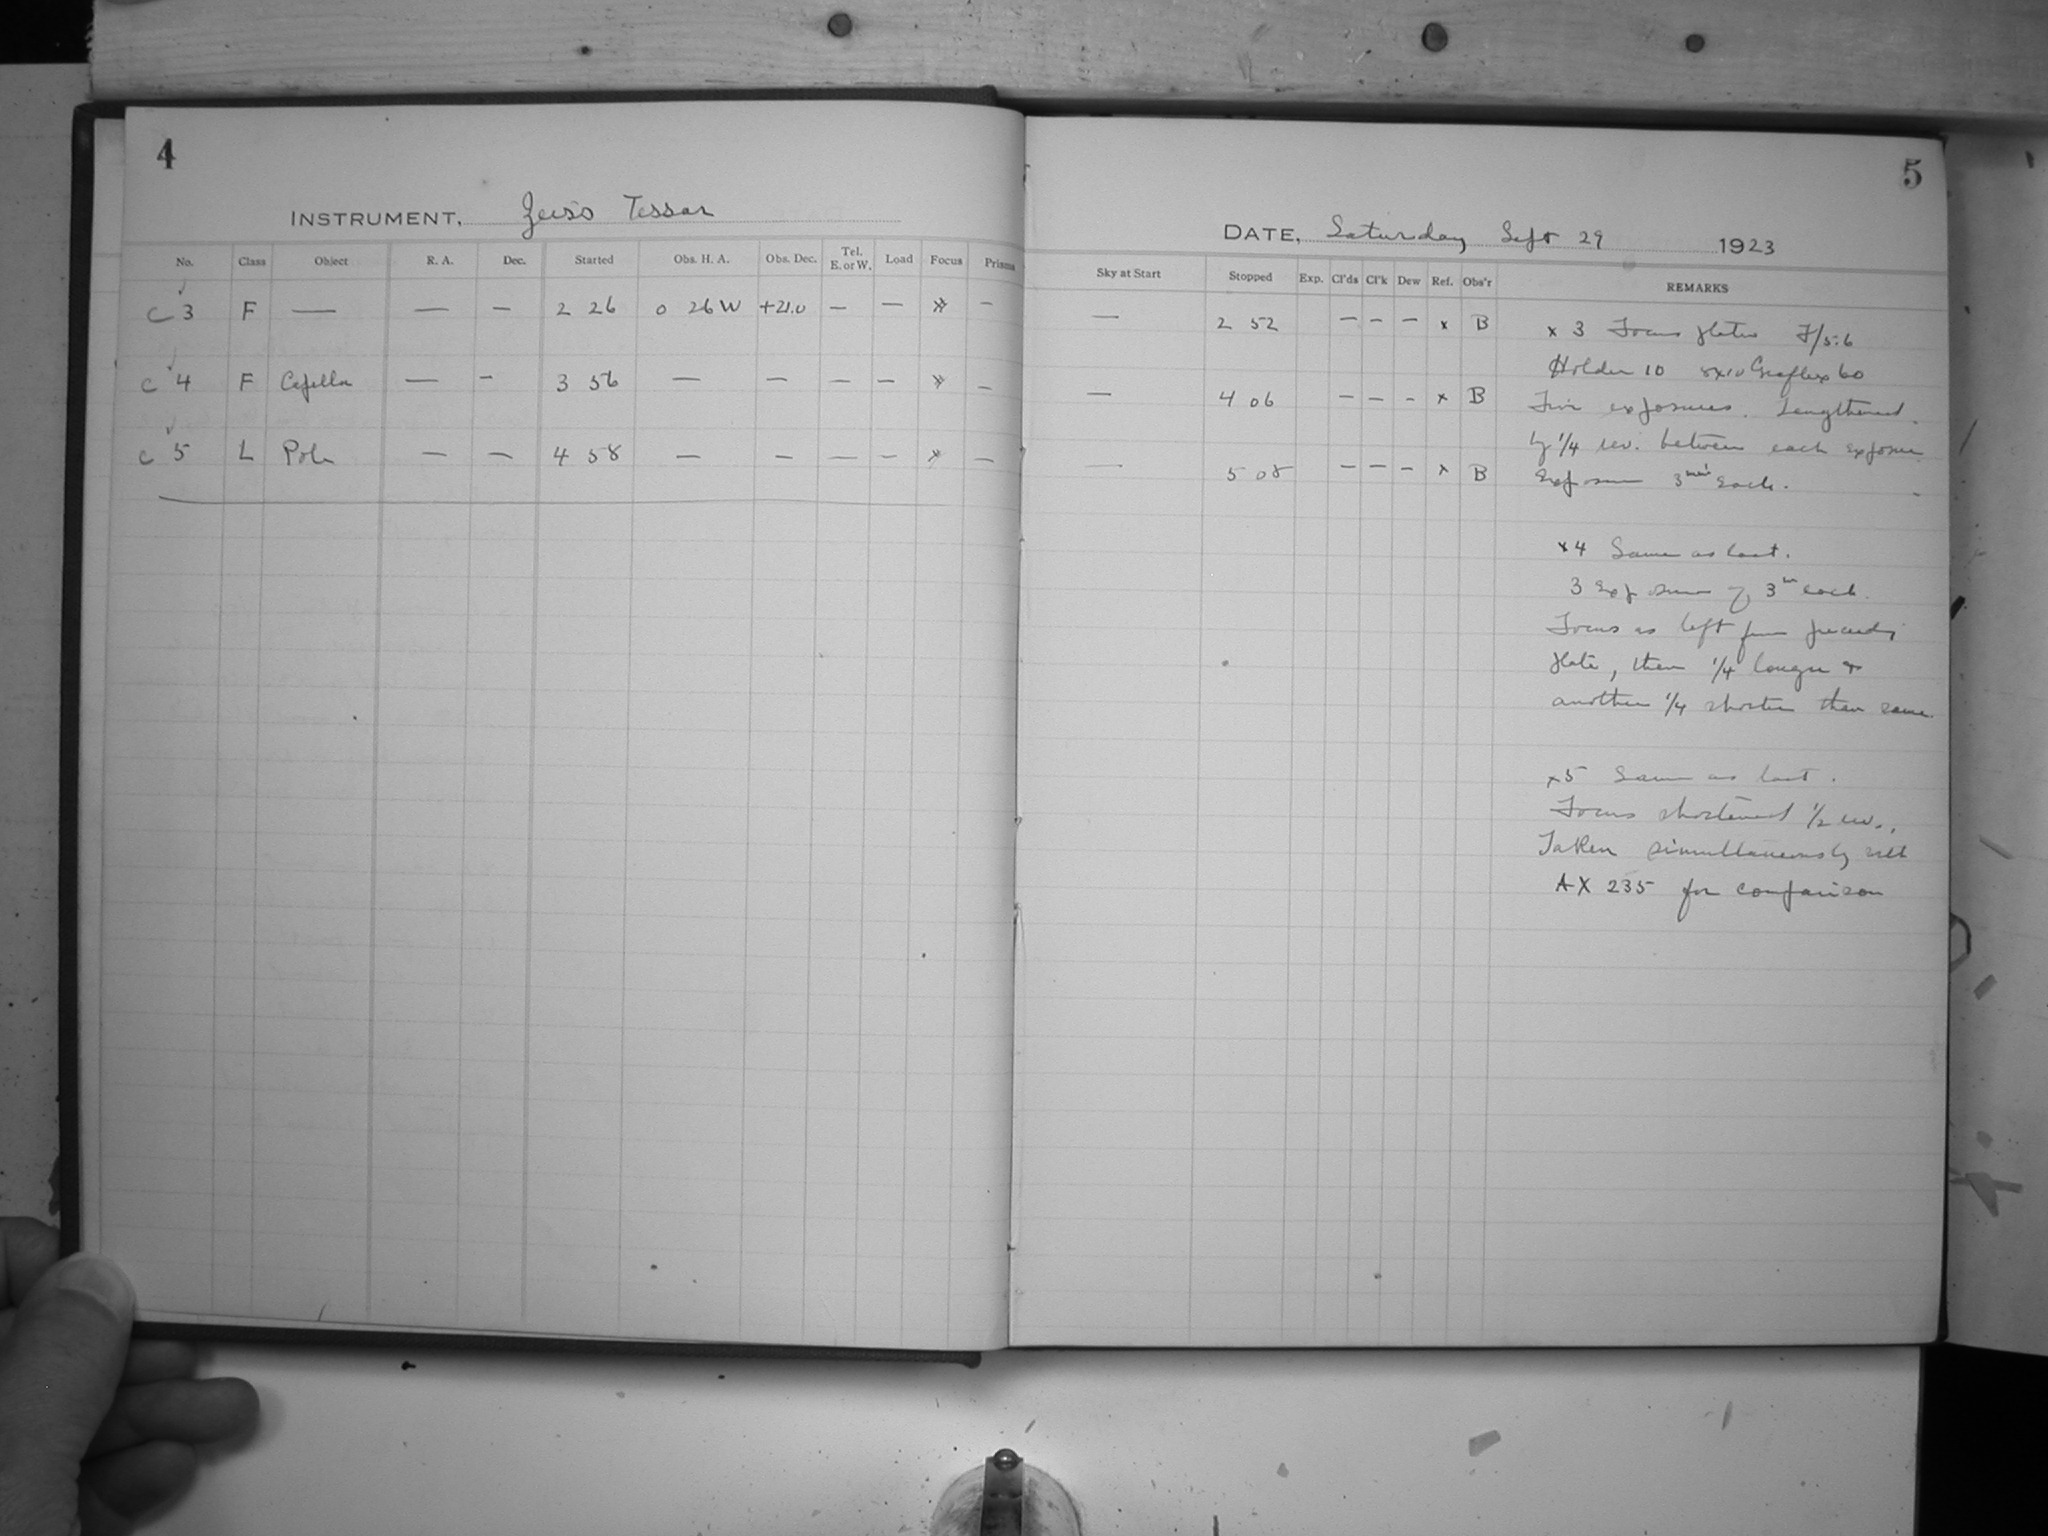 4
INSTRUMENT, Zeiss Tessar
No. Class Object R. A. Dec. Started Obs. H. A. Obs. Dec. Tel. E. or W. Load Focus Prisms
✓
C 3 F — — — 2 26 0 26 W +21.0 — — * —
✓
C 4 F Capella — — 3 56 — — — — * —
✓
C 5 L Pole — — 4 58 — — — — * —
5
DATE, Saturday Sept 29 1923
Sky at Start Stopped Exp. Cl'ds Cl'k Dew Ref. Obs'r REMARKS
— 2 52 — — — x B
— 4 06 — — — x B
— 5 08 — — — x B
x 3 Focus plates F/5.6
Holder 10 8x10 Graflex 60
Five exposures. Lengthened
by 1/4 rev. between each exposure
Exposure 3 min each.
x 4 Same as last.
3 Exposures of 3m each.
Focus as left from preceding
plate, then 1/4 longer &
another 1/4 shorter than same
x 5 Same as last.
Focus shortened 1/2 rev.,
Taken simultaneously with
AX 235 for comparison